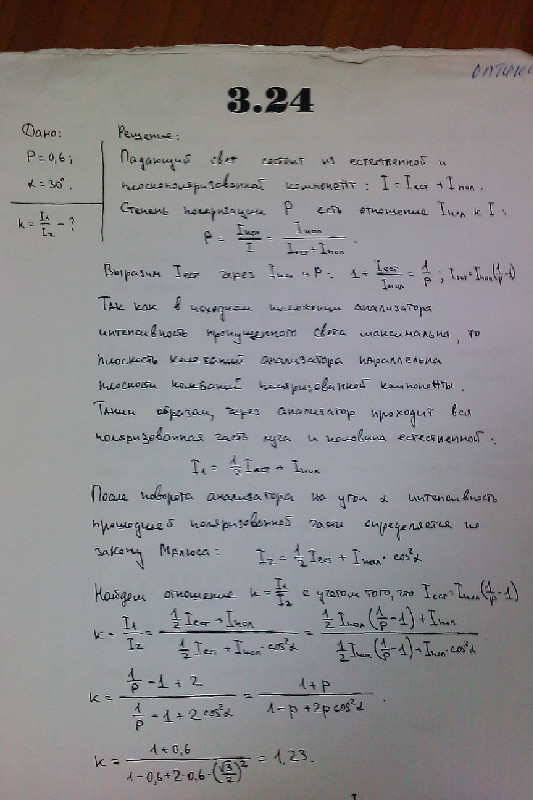 ОПТИКА
3.24
Дано:
P = 0,6;
α = 30°.
k = I₁/I₂ - ?
Решение:
Падающий свет состоит из естественной и
плоскополяризованной компонент: I = Iест + Iпол.
Степень поляризации P есть отношение Iпол к I:
P = Iпол/I = Iпол/(Iест + Iпол).
Выразим Iест через Iпол и P: 1 + Iест/Iпол = 1/P; Iест = Iпол(1/P - 1)
Так как в исходном положении анализатора
интенсивность пропущенного света максимальна, то
плоскость колебаний анализатора параллельна
плоскости колебаний поляризованной компоненты.
Таким образом, через анализатор проходит вся
поляризованная часть луча и половина естественной:
I₁ = 1/2 Iест + Iпол
После поворота анализатора на угол α интенсивность
прошедшей поляризованной части определяется по
закону Малюса: I₂ = 1/2 Iест + Iпол · cos²α
Найдем отношение k = I₁/I₂ с учетом того, что Iест = Iпол(1/P - 1)
k = I₁/I₂ = (1/2 Iест + Iпол)/(1/2 Iест + Iпол · cos²α) = (1/2 Iпол(1/P - 1) + Iпол)/(1/2 Iпол(1/P - 1) + Iпол · cos²α)
k = (1/P - 1 + 2)/(1/P - 1 + 2cos²α) = (1 + P)/(1 - P + 2P cos²α).
k = (1 + 0,6)/(1 - 0,6 + 2·0,6·(√3/2)²) = 1,23.